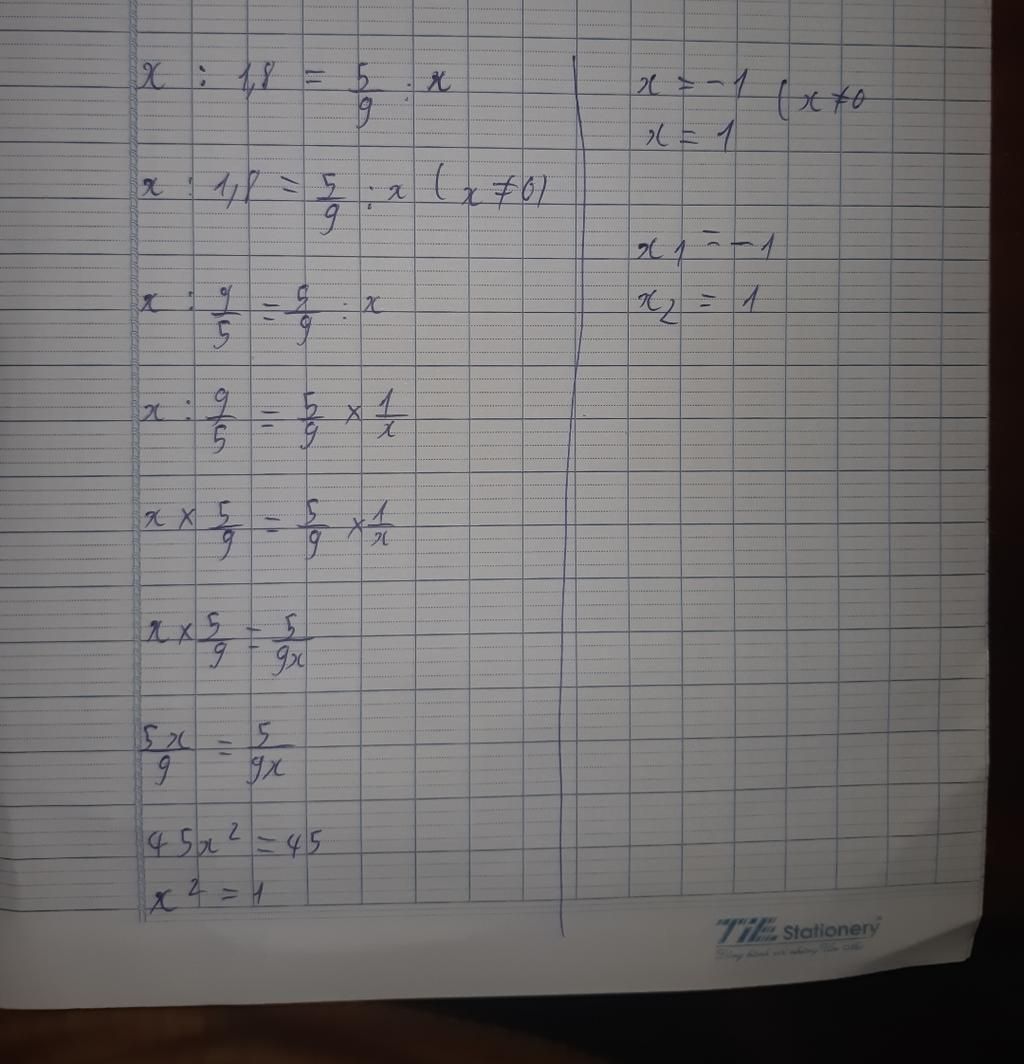 x : 1,8 = 5/9 : x
x : 1,8 = 5/9 : x ( x ≠ 0)
x : 9/5 = 5/9 : x
x : 9/5 = 5/9 × 1/x
x × 5/9 = 5/9 × 1/x
x × 5/9 = 5/9x
5x/9 = 5/9x
45x² = 45
x² = 1
x = -1 ( x ≠ 0
x = 1
x₁ = -1
x₂ = 1
TiE Stationery